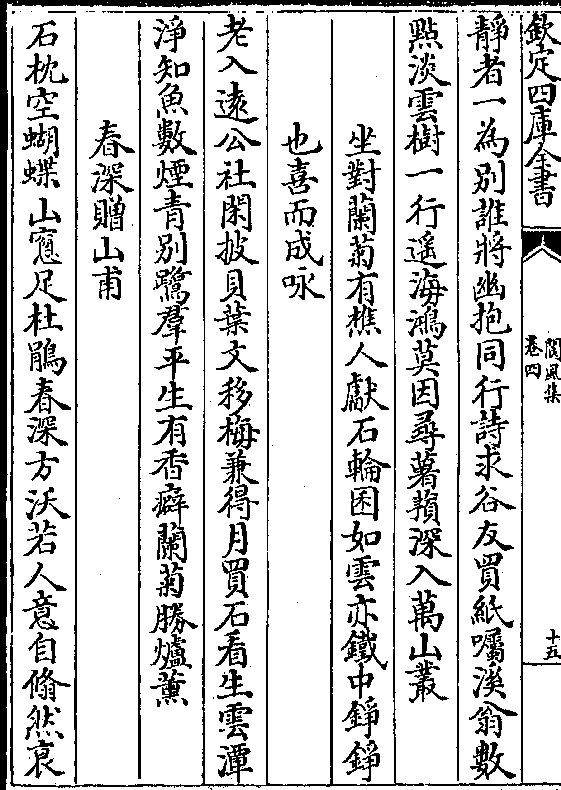 欽定四庫全書
閬風集
卷四
十五
靜者一為别誰將幽抱同行詩求谷友買紙囑溪翁數
點淡雲樹一行遥海鴻莫因尋薯蕷深入萬山叢
坐對蘭菊有樵人獻石輪囷如雲亦鐵中錚錚
也喜而成咏
老入逺公社閑披貝葉文移梅兼得月買石看生雲潭
淨知魚數煙青别鷺羣平生有香癖蘭菊勝爐薰
春深贈山甫
石枕空蝴蝶山窻足杜鵑春深方沃若人意自翛然哀